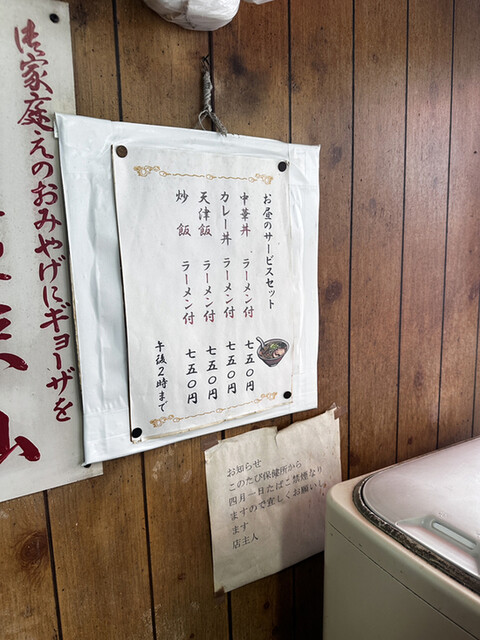 御家庭えのおみやげにギョーザを
お昼のサービスセット
中華丼 ラーメン付 七五〇円
カレー丼 ラーメン付 七五〇円
天津飯 ラーメン付 七五〇円
炒飯 ラーメン付 七五〇円
午後2時まで
お知らせ
このたび保健所から
四月一日たばこ禁煙なり
ますので宜しくお願いし
ます
店主人